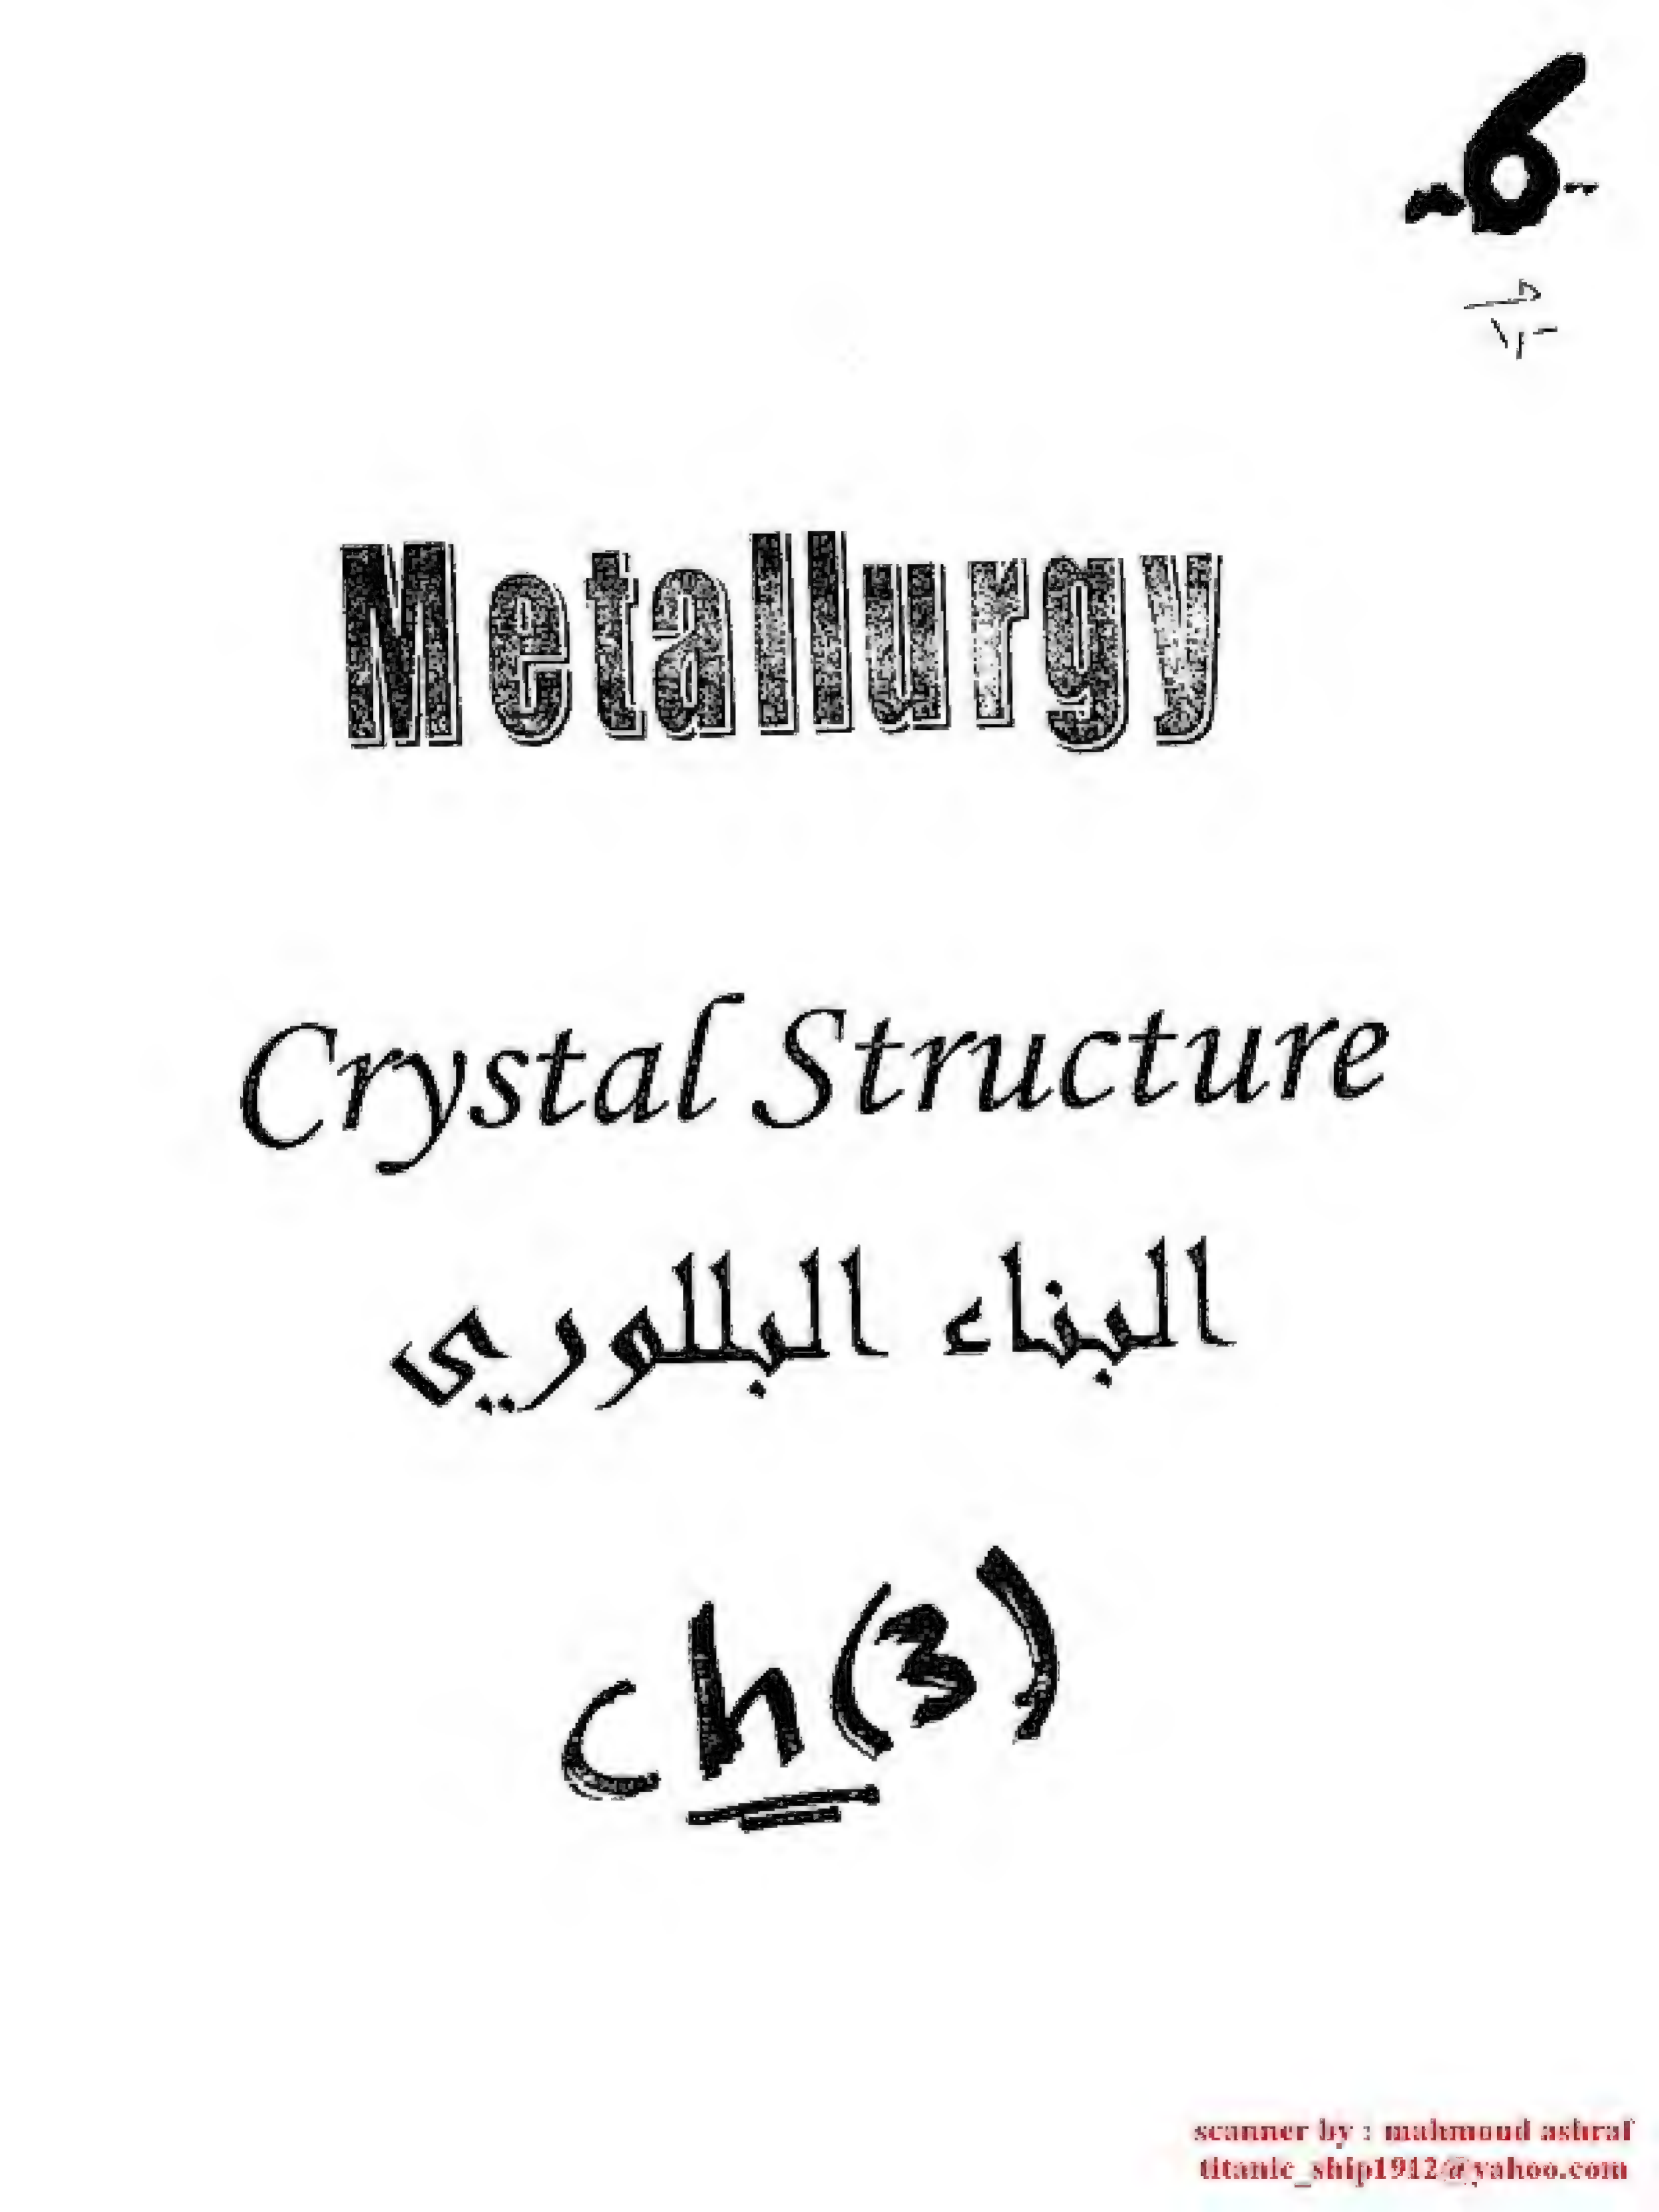 -6-
Metallurgy
Crystal Structure
البناء البللوري
ch(3)
scanner by : mahmoud ashraf
titanic_ship1912@yahoo.com